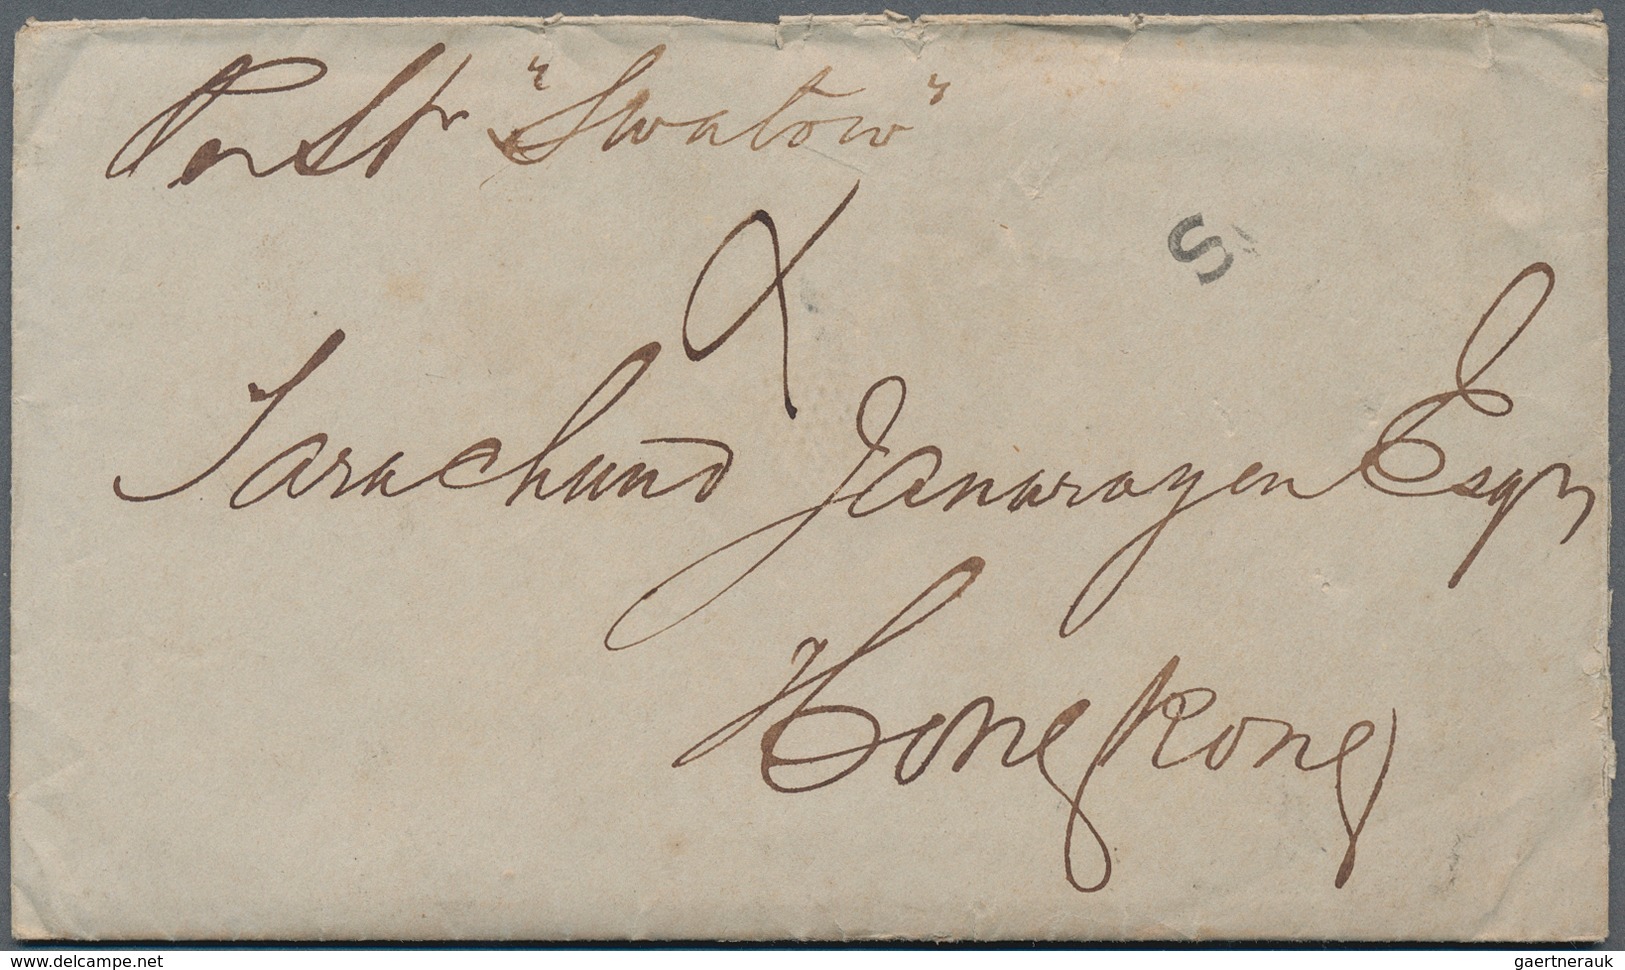 Per Str "Swatow"
S
Tarachund Janarayen Esqr
Hong Kong
www.delcampe.net
gaertnerauk